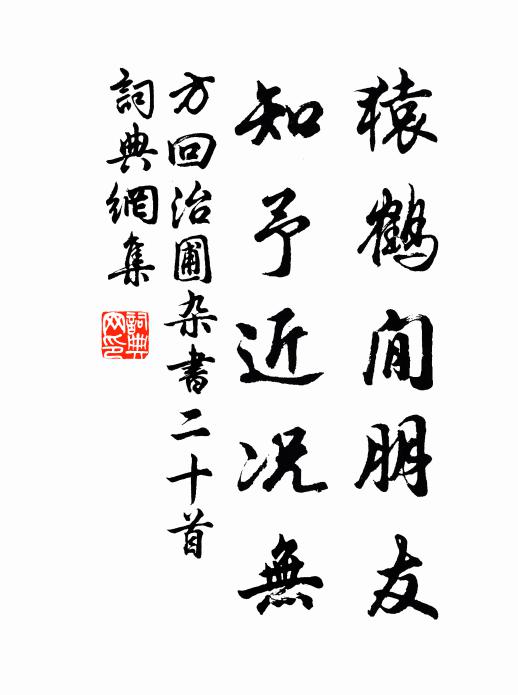 猿鶴閒朋友
知予近况無
方回治圃杂書二十首
詞典網集
詞典网印